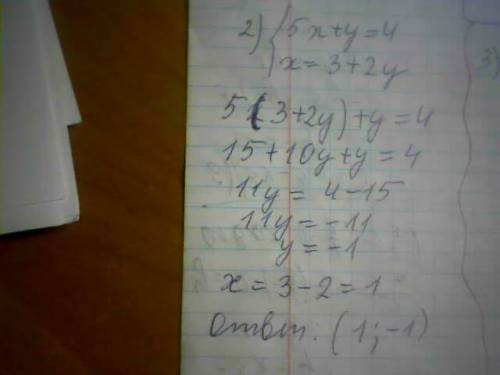 2) { 5x+y=4
x=3+2y
5(3+2y)+y=4
15+10y+y=4
11y=4-15
11y=-11
y=-1
x=3-2=1
Ответ. (1;-1)
3)